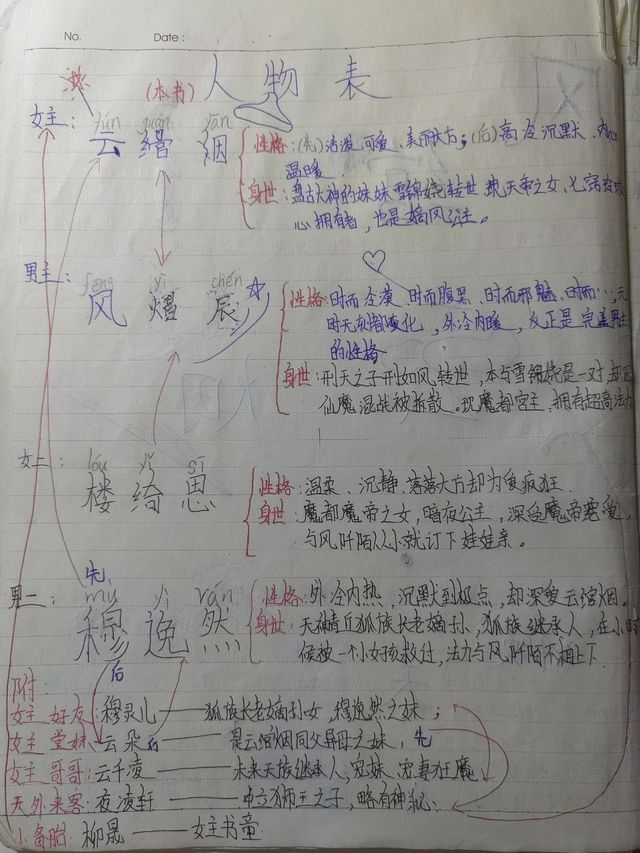 No.
Date :
(本书) 人物表
yún guǎn yān
女主: 云 绾 烟
性格: (先)活泼可爱、美丽大方; (后)高冷沉默、内心
温暖
身世: 盘古大神的妹妹雪锦娆转世 现天帝之女、七窍玲珑
心拥有者，也是嫡凤公主。
fēng yì chén
男主: 风 熠 辰
性格: 时而冷漠、时而腹黑、时而邪魅、时而…,无
时无刻都变化，外冷内暖，反正是完美男主
的性格
身世: 刑天之子刑如风转世，本与雪锦娆是一对，却因
仙魔混战被拆散。现魔都宫主，拥有超高法力
lóu yǐ sī
女二: 楼 绮 思
性格: 温柔、沉静、落落大方却为爱疯狂
身世: 魔都魔帝之女，暗夜公主，深受魔帝宠爱，
与风阡陌从小就订下娃娃亲。
先
mù yì rán
男二: 穆 逸 然
性格: 外冷内热，沉默到极点，却深爱云绾烟。
身世: 天神青丘狐族长老嫡孙，狐族继承人，在小时
候被一个小女孩救过，法力与风阡陌不相上下
后
附:
女主 好友: 穆灵儿——狐族长老嫡孙女，穆逸然之妹;
女主 堂妹: 云朵 后——是云绾烟同父异母之妹; 先
女主 哥哥: 云千凌——未来天族继承人，宠妹、宠妻狂魔
天外来客: 夜凌轩——中立狮王之子，略有神秘;
小备胎: 柳晟——女主书童